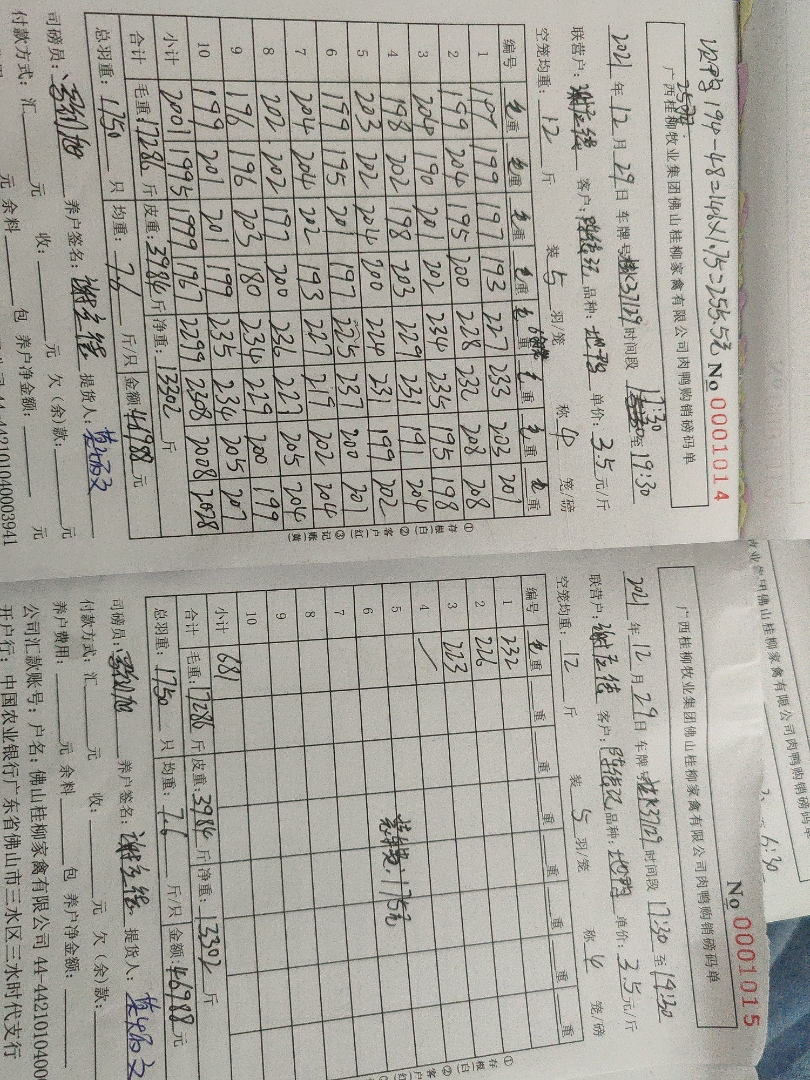 194-48=146×1.75=255.5元
No 0001014
广西桂柳牧业集团佛山桂柳家禽有限公司肉鸭购销磅码单
2021年12月29日 车牌号 37129 时间段 17:30至19:30
联营户: 客户: 品种: 单价: 3.5元/斤
空笼均重: 12 斤 装 5 羽/笼 称 4 笼/磅
编号 毛重 毛重 毛重 毛重 毛重 毛重 毛重
1 197 199 197 193 227 233 203 201
2 199 204 195 200 228 232 208 208
3 204 190 201 202 234 235 195 198
4 198 202 198 203 229 231 191 204
5 203 202 204 200 224 231 199 202
6 199 195 201 197 225 237 200 201
7 204 204 202 193 227 219 202 204
8 202 202 197 200 236 227 205 204
9 196 196 203 180 234 229 200 199
10 199 201 201 199 235 234 205 207
小计 2001 1995 1999 1967 2299 2308 2008 2028
合计 毛重: 17286 斤 皮重: 3984 斤 净重: 13302 斤
总羽重: 1750 只 均重: 7.6 斤/只 金额: 46988 元
司磅员: 养户签名: 提货人:
付款方式: 汇 元 收: 元 欠(余)款: 元
元 余料 包 养户净金额: 元
44-442101040003941
①存根(白) ②客户(红) ③记账(黄)
No 0001015
广西桂柳牧业集团佛山桂柳家禽有限公司肉鸭购销磅码单
2021年12月29日 车牌号 37129 时间段 17:30至19:30
联营户: 客户: 品种: 单价: 3.5元/斤
空笼均重: 12 斤 装 5 羽/笼 称 4 笼/磅
编号 毛重 重 重 重 重 重 重 重
1 232
2 226
3 223
4
5 175元
6
7
8
9
10
小计 681
合计 毛重: 17286 斤 皮重: 3984 斤 净重: 13302 斤
总羽重: 1750 只 均重: 7.6 斤/只 金额: 46988 元
司磅员: 养户签名: 提货人:
付款方式: 汇 元 收: 元 欠(余)款:
养户费用: 元 余料 包 养户净金额:
公司汇款账号: 户名: 佛山桂柳家禽有限公司 44-442101040
开户行: 中国农业银行广东省佛山市三水区三水时代支行